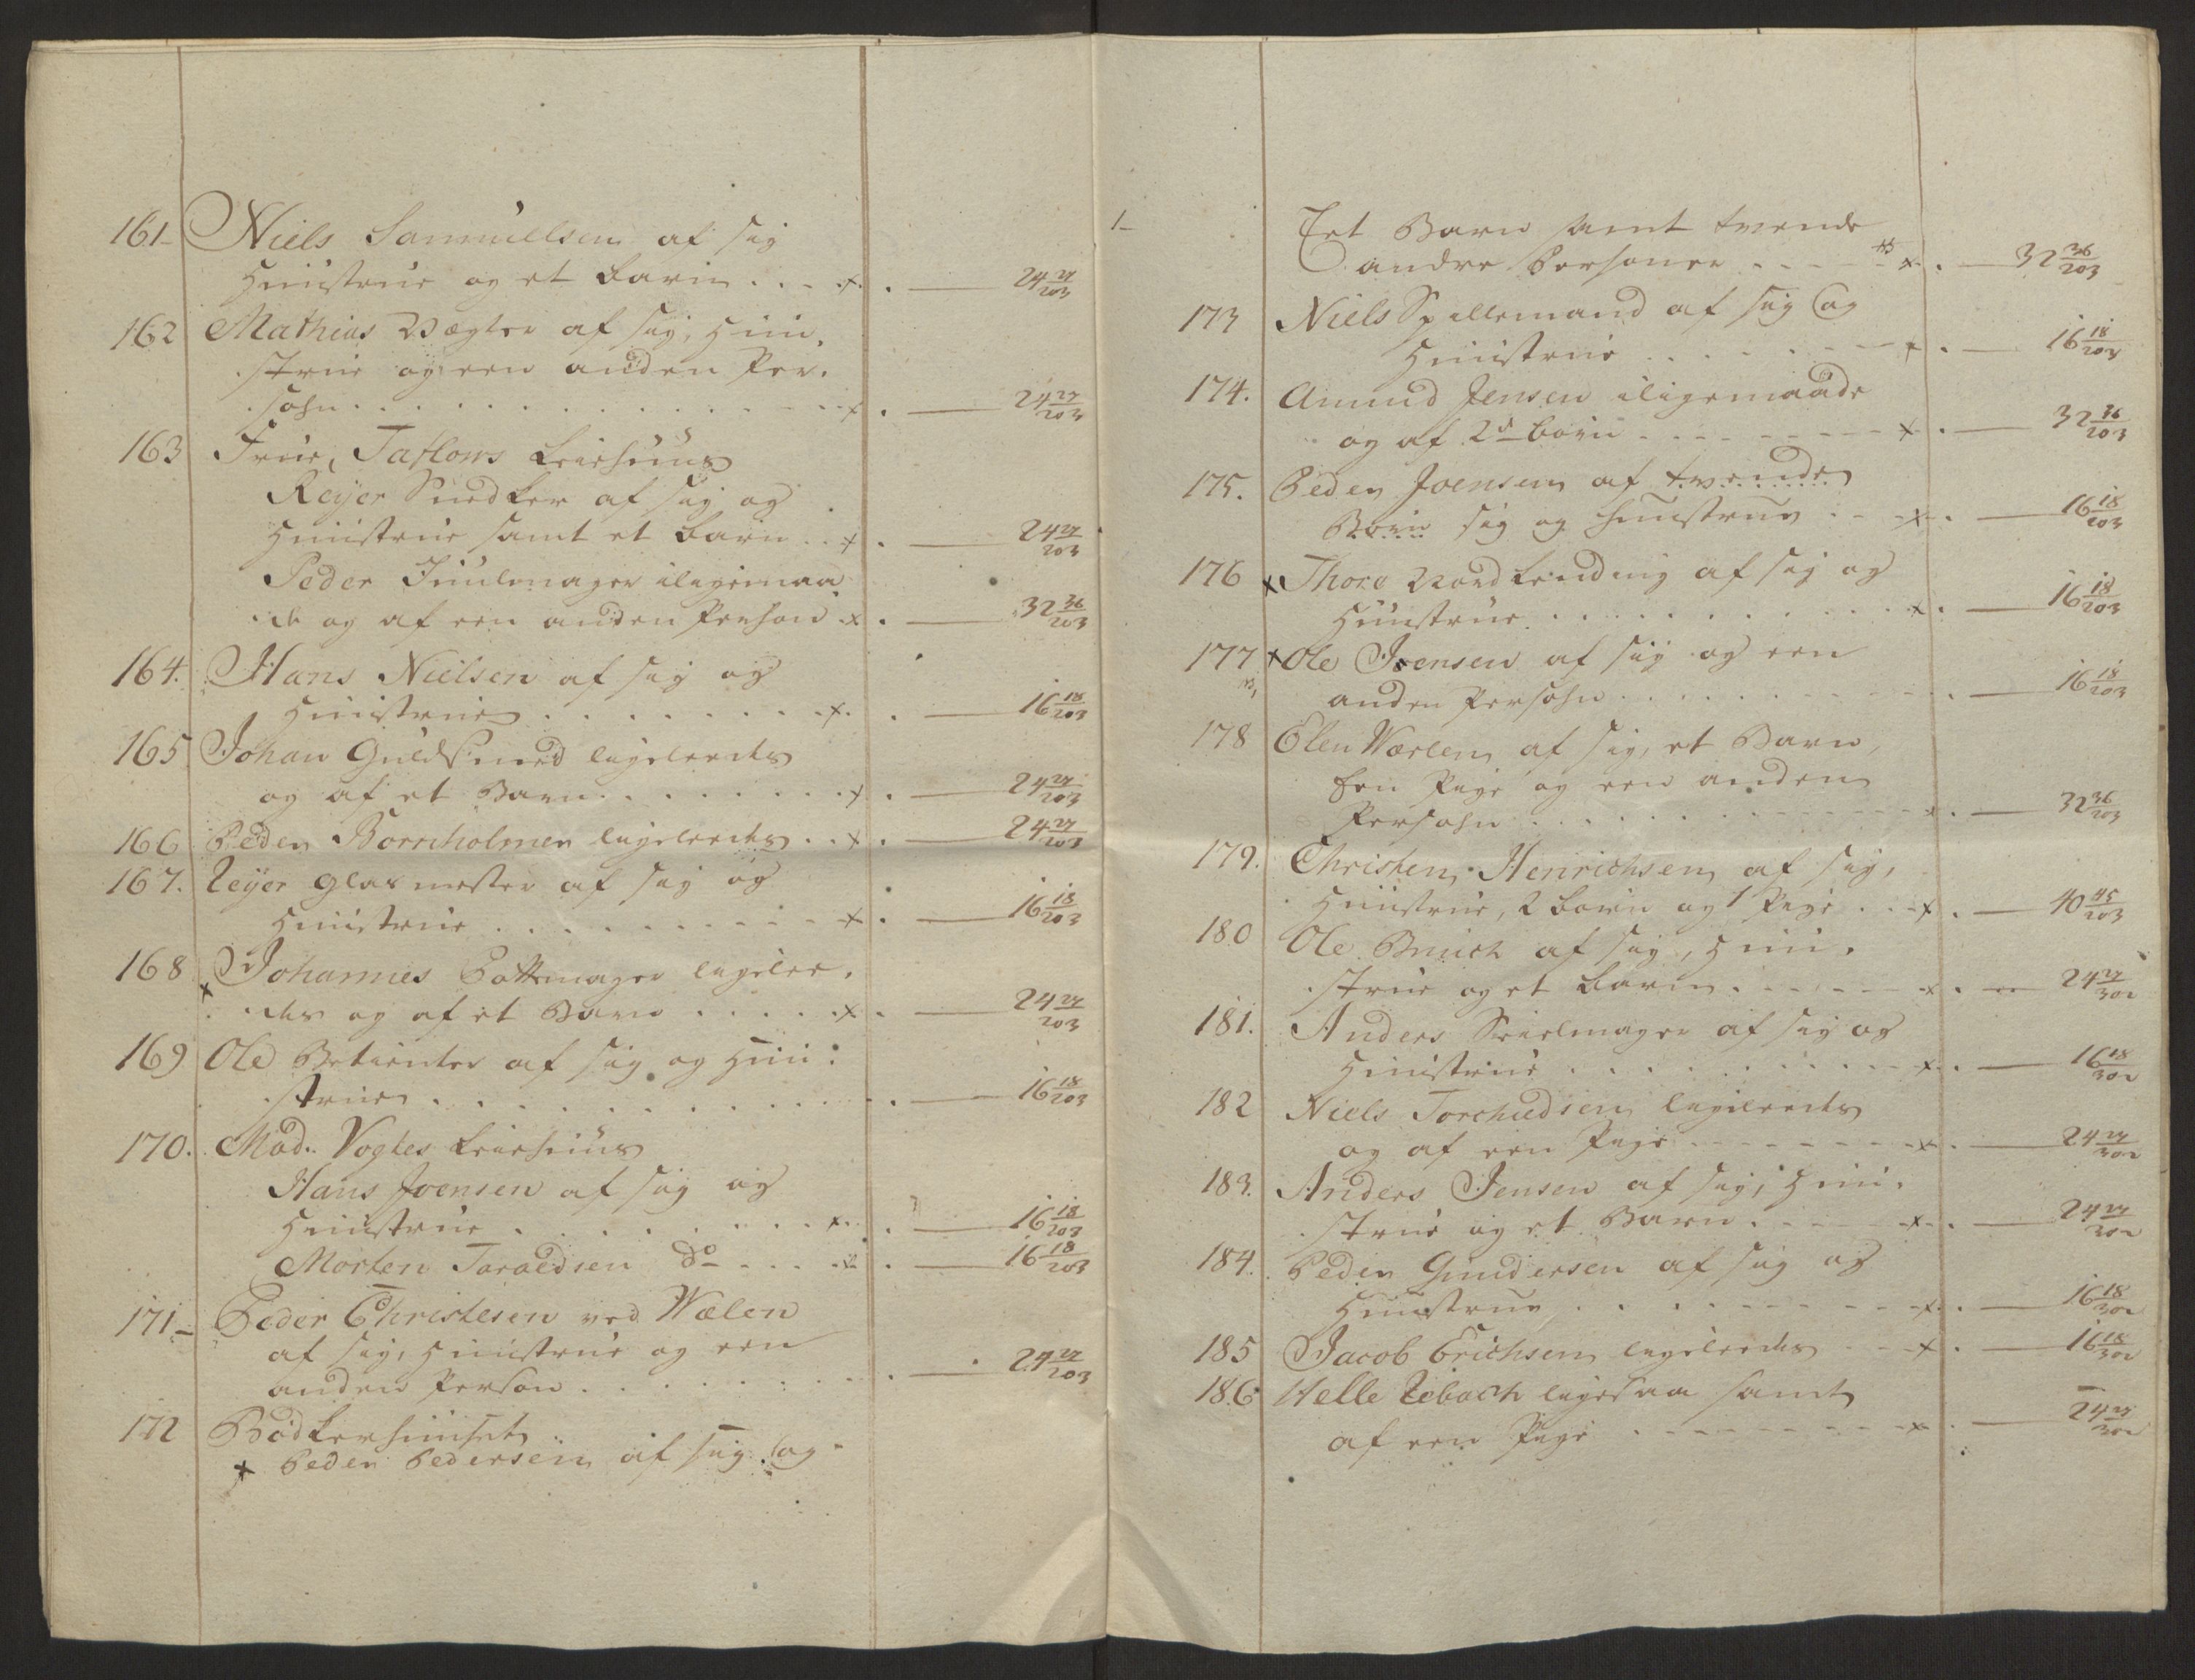 161- Niels Samuellsen af sig
Hüüstrüe og et barn . . . x . — 24 27/203
162 Mathias Vægter af sig, Hüü,
strüe og een anden Per.
sohn . . . . . . . x . — 24 27/203
163 Früe, Taflows Leiehüüs
Reyer Snedker af sig og
Hüüstrüe samt et barn . . x . — 24 27/203
Peder Jüülmager iligemaa
de og af een anden Persohn x . — 32 36/203
164. Hans Nielsen af sig og
Hüüstrüe . . . . . . x . — 16 18/203
165 Johan Guldsmed ligeleedes
og af et Barn . . . . . x . — 24 27/203
166 Peder Bornholmer ligeleedes . . x . — 24 27/203
167. Reyer Glasmester af sig og
Hüüstrüe . . . . . . x . — 16 18/203
168 x Johannes Pottemager ligelee.
des og af et Barn . . . . x . — 24 27/203
169 Ole Betienter af sig og Hüü.
strüe . . . . . . . . . — 16 18/203
170. Mad. Vogtes Leiehüüs
Hans Joensen af sig og
Hüüstrüe . . . . . . x . — 16 18/203
Morten Taraldsen do - . . . x . — 16 18/203
171- Peder Christesen ved Wælen
af sig, Hüüstrüe og een
anden Person . . . . . . . — 24 27/203
172 Bødkerhüüset
x Peder Pedersen af sig og
1-
Eet Barn samt tvende
andre Personer . . . . x . — 32 36/203
173 Niels Spillemand af sig og
Hüüstrüe . . . . . . x . — 16 18/203
174. Amund Jensen iligemaade
og af 2de børn . . . . . x . — 32 36/203
175. Peder Joensen af tvende
Børn sig og hüüstrüe . . . x . — 16 18/203
176 x Thore Nordlending af sig og
Hüüstrüe . . . . . . . x . — 16 18/203
177 x Ole Jensen af sig og een
anden Persohn . . . . . . . — 16 18/203
178 Elen Værlem af sig, et Barn,
Een Pige og een anden
Persohn . . . . . . . x . — 32 36/203
179. Christen Henrichsen af sig,
Hüüstrüe, 2 børn og 1 Pige . . x . — 40 45/203
180 Ole Bruch af sig, Hüü.
strüe og et barn . . . . x . — 24 27/302
181. Anders Seielmager af sig og
Hüüstrüe . . . . . . . x . — 16 18/302
182 Niels Torchildsen ligeleedes
og af een Pige . . . . . x . — 24 27/302
183. Anders Jensen af sig, Hüü.
strüe og et Barn . . . . x . — 24 27/302
184. Peder Gundersen af sig og
Hüüstrüe . . . . . . . x . — 16 18/302
185 Jacob Erichsen ligeleedes . . x . — 16 18/302
186 Helle Rebach ligesaa samt
af een Pige . . . . . . x . — 24 27/302